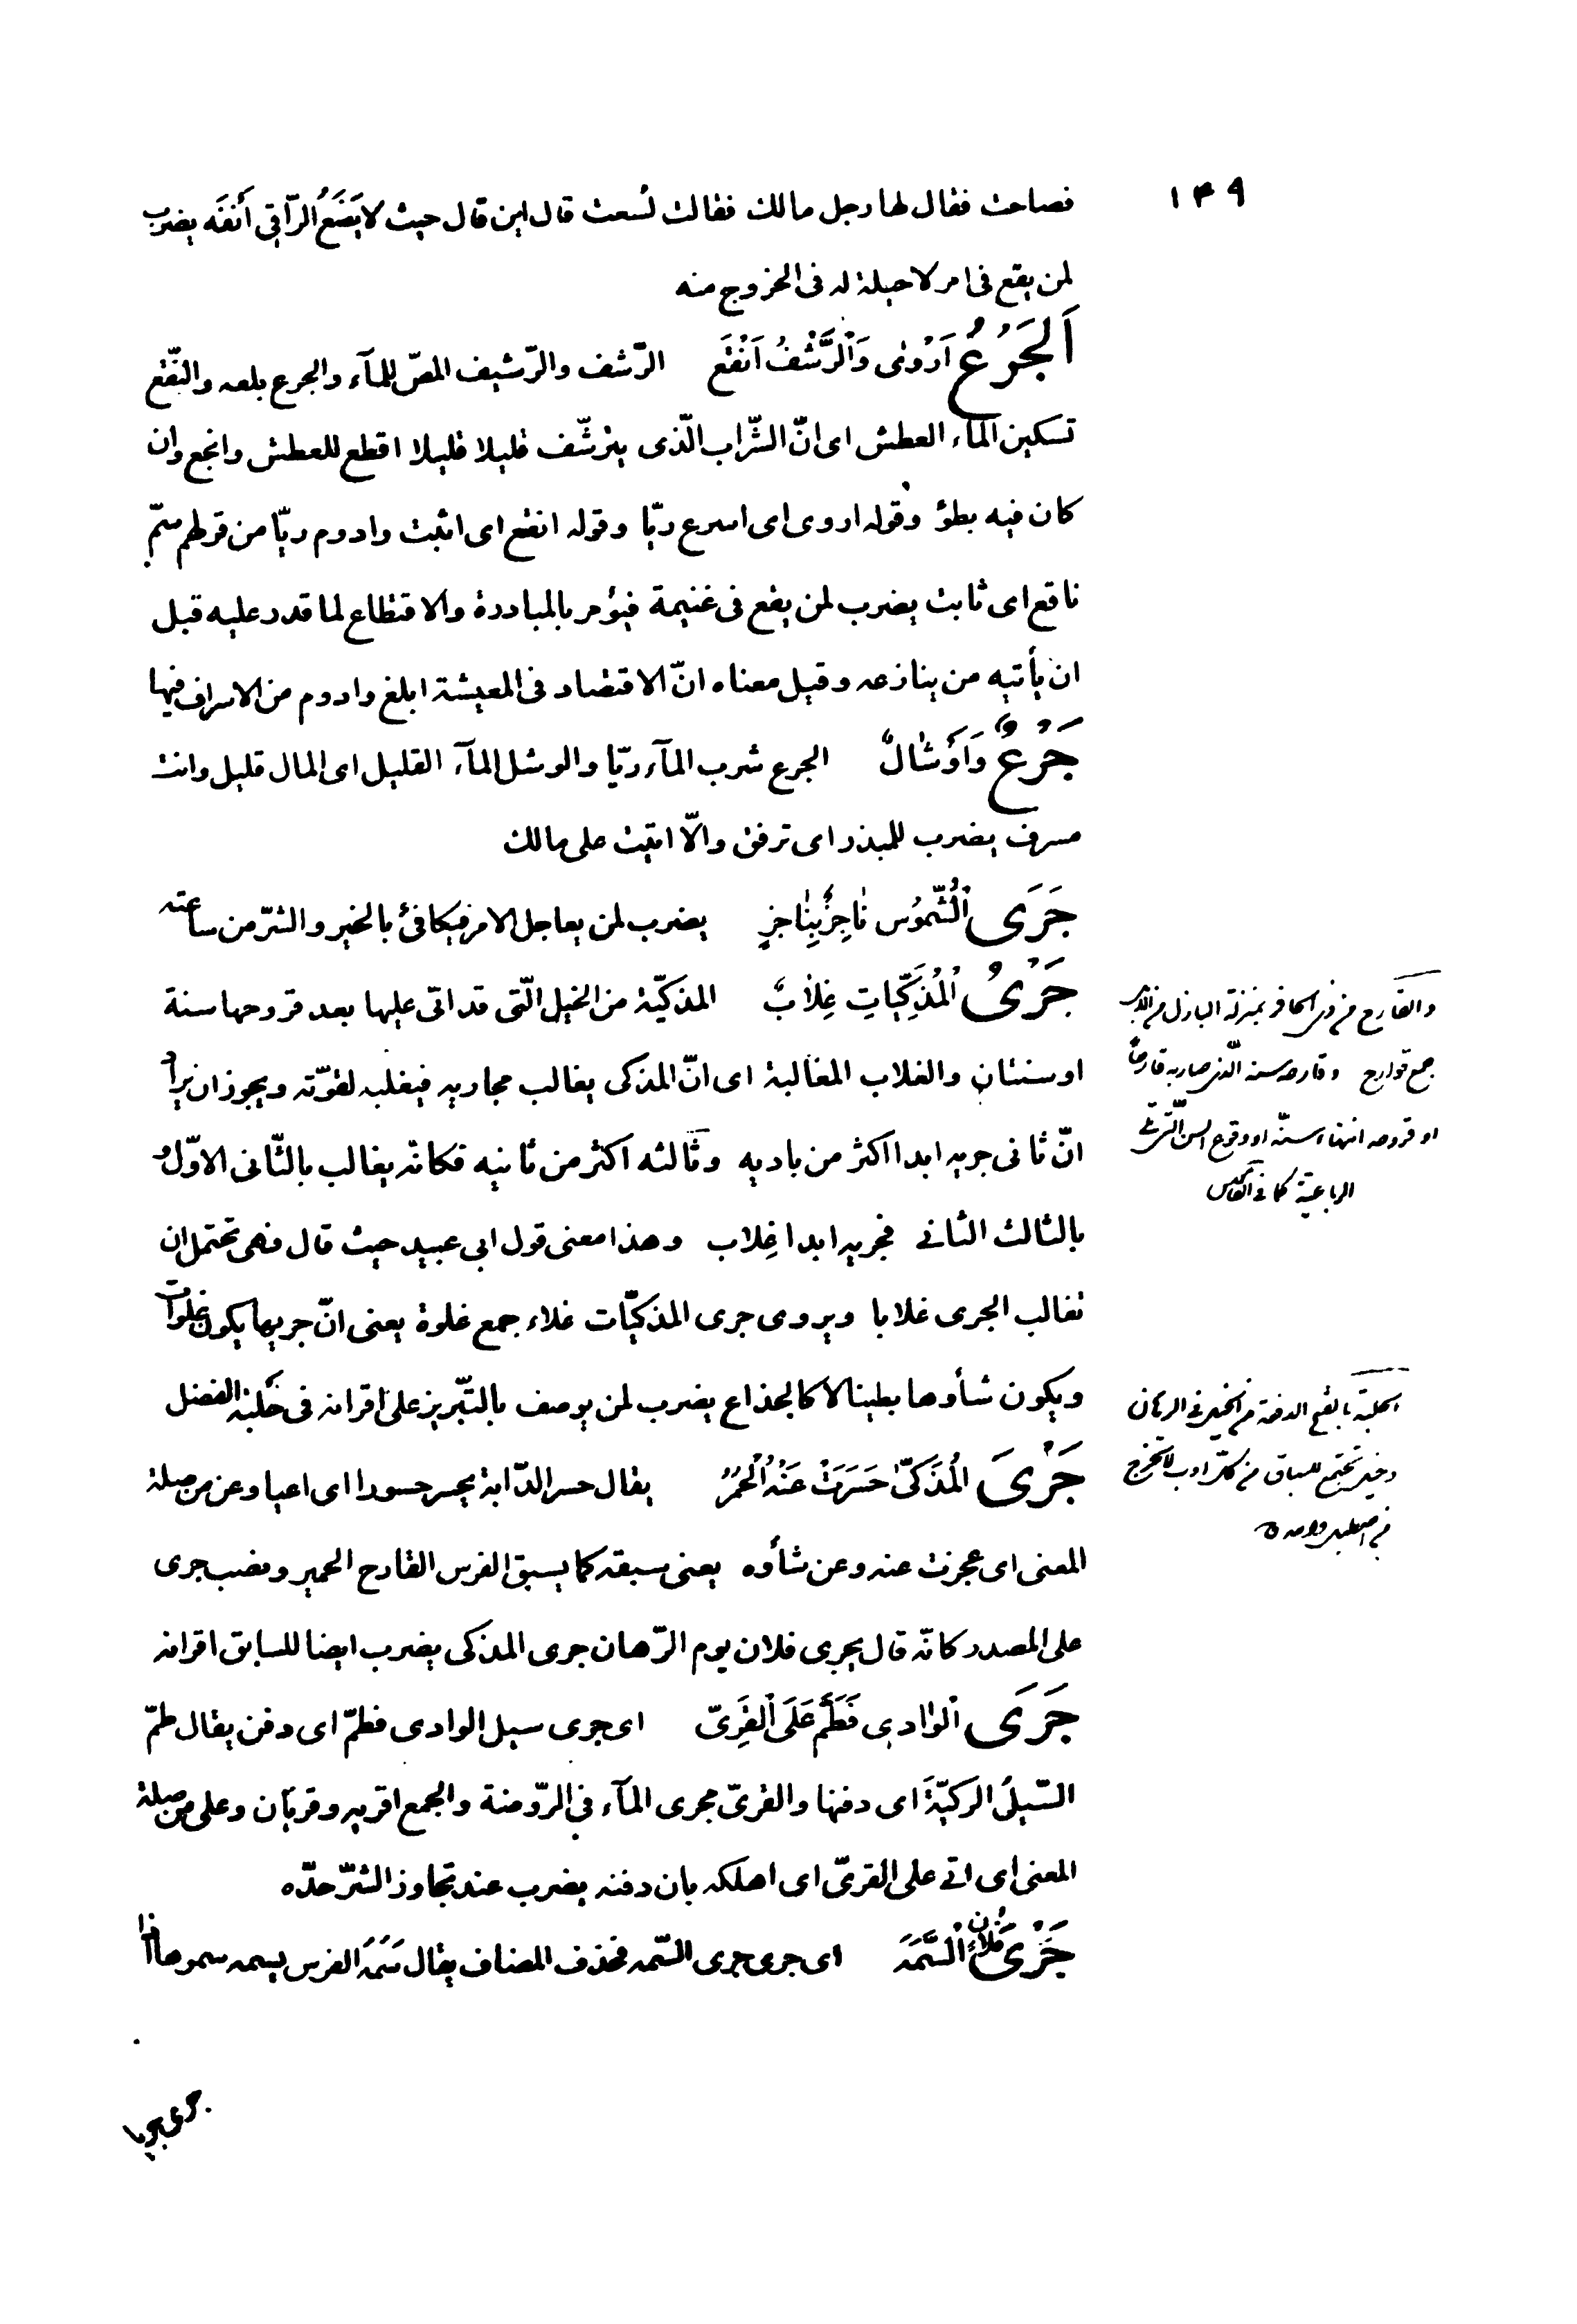 ١٤٩
فصاحت فقال لها رجل مالك فقالت لُسعت قال اين قال حيث لا يَضَعُ الرّاقى أنفَه يضرب
لمن يقع فى امر لا حيلة له فى الخروج منه
اَلجَرْعُ اَرْوٰى وَالْرَّشْفُ اَنْقَع الرّشف والرّشيف المصّ للمآء والجرع بلعه والنّقع
تسكين المآء العطش اى انّ الشّراب الّذى يترشّف قليلا قليلا اقطع للعطش وانجع وان
كان فيه بطؤ وقوله اروى اى اسرع ريّا وقوله انقع اى اثبت وادوم ريّا من قولهم سمّ
ناقع اى ثابت يضرب لمن يقع فى غنيمة فيؤمر بالمبادرة والاقتطاع لما قدر عليه قبل
ان يأتيه من ينازعه وقيل معناه انّ الاقتصاد فى المعيشة ابلغ وادوم من الاسراف فيها
جَرْعٌ وَاَوْشٰالٌ الجرع شرب المآء ريّا والوشل المآء القليل اى المال قليل وانت
مسرف يضرب للمبذر اى ترفق والّا اتيت على مالك
جَرَى الْشَّمُوُس نٰاجِزٌ بِنٰاجزٍ يضرب لمن يعاجل الامر فيكافئ بالخير والشرّ من ساعته
جَرْىُ الْمُذَكِّيٰاتِ غِلاٰبٌ المذكيّة من الخيل الّتى قد اتى عليها بعد قروحها سنة
او سنتان والغلاب المغالبة اى انّ المذكى يغالب مجاريه فيغلبه لقوّته ويجوز ان يراد
انّ ثانى جريه ابدا اكثر من باديه وثالثه اكثر من ثانيه فكانّه يغالب بالثّانى الاوّل و
بالثالث الثانى فجريه ابدا غِلاب وهذا معنى قول ابى عبيد حيث قال فهى تحتمل ان
تغالب الجرى غلابا ويروى جرى المذكيّات غلاء جمع غلوة يعنى انّ جريها يكون غلوات
ويكون شأوها بطينا لا كالجذاع يضرب لمن يوصف بالتّبريز على اقرانه فى حَلبة الفضل
جَرْىَ الْمُذَكىّٰ حَسَرَتْ عَنْهُ الْحُمُرُ يقال حسر الدّابة يحسر حسورا اى اعيا وعن من صلة
المعنى اى عجزت عنه وعن شأوه يعنى سبقه كما يسبق الفرس القارح الحمير ونصب جرى
على المصدر كانّه قال يجرى فلان يوم الرّهان جرى المذكى يضرب ايضا للسابق اقرانه
جَرَى الْوٰادى فَطَمَّ عَلَى الْقَرِىّ اى جرى سيل الوادى فطمّ اى دفن يقال طمّ
السّيلُ الركيّةَ اى دفنها والقرىّ مجرى المآء فى الرّوضة والجمع اقريه وقريان وعلى من صلة
المعنى اى اتى على القرىّ اى اهلكه بان دفنه يضرب عند تجاوز الشرّ حدّه
جَرْىَ فلان الْسُّمَّهِ اى جرى جرى السّمه فحذف المضاف يقال سَمَهَ الفرس يسمه سموها اذا
والقارح من ذى الحافر بمنزلة البازل من الابل
جمع قوارح وقارحه سنه الّذى صار به قارحاً
او قروحه انتهاء سنّه او وقوع السن الّتى تلى
الرباعية كما فى القاموس
الحلبة بالفتح الدفعة من الخيل فى الرهان
وخيل تجتمع للسباق من كلّ اوب لا تخرج
من اصطبل واحد
جرى يجرى